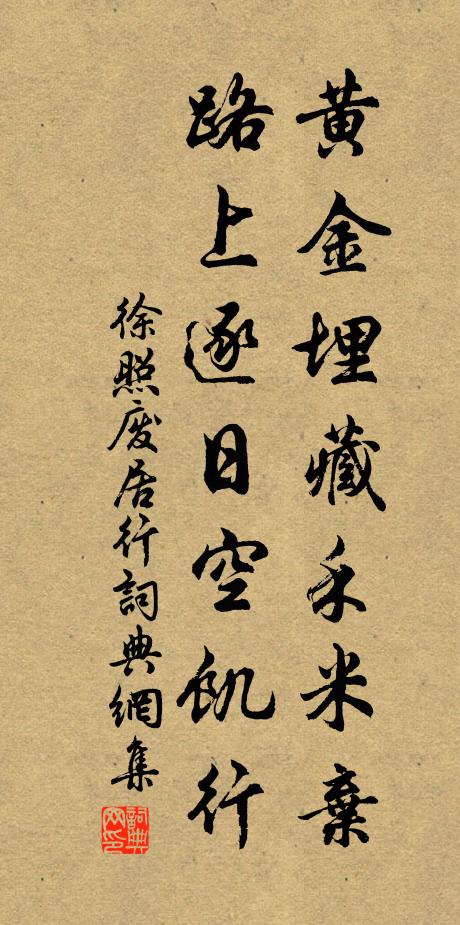 黄金埋藏禾米棄
路上逐日空飢行
徐照廢居行詞典網集
詞典网印